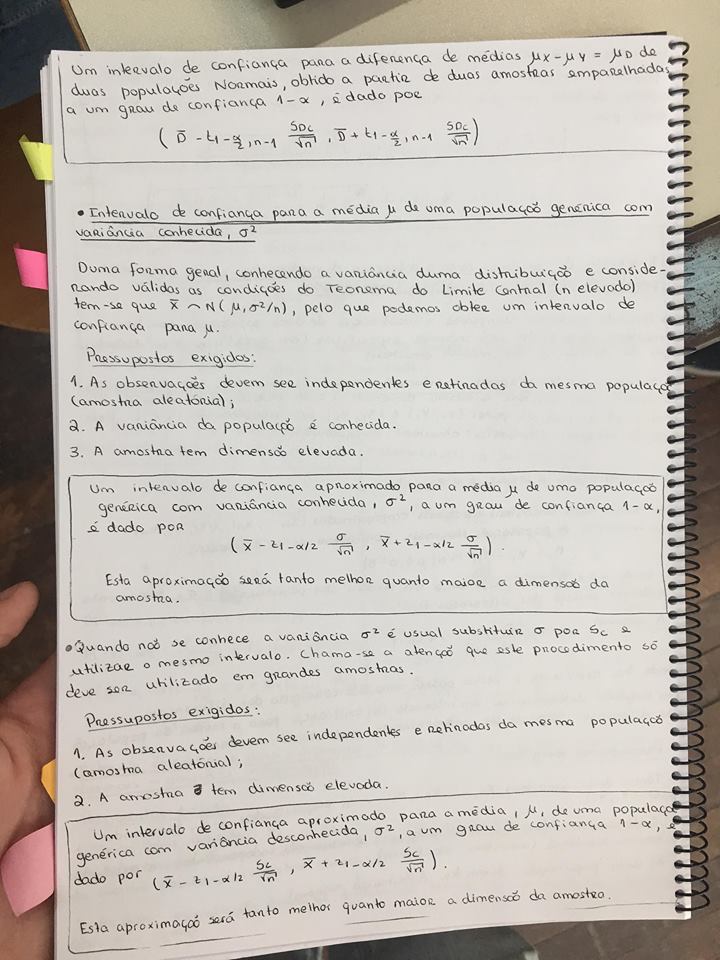 Um intervalo de confiança para a diferença de médias μX - μY = μD de
duas populações Normais, obtido a partir de duas amostras emparelhadas,
a um grau de confiança 1-α, é dado por
( D̄ - t1-α/2, n-1 SDc/√n , D̄ + t1-α/2, n-1 SDc/√n )
• Intervalo de confiança para a média μ de uma população genérica com
variância conhecida, σ²
Duma forma geral, conhecendo a variância duma distribuição e conside-
rando válidas as condições do Teorema do Limite Central (n elevado)
tem-se que X̄ ~ N(μ, σ²/n), pelo que podemos obter um intervalo de
confiança para μ.
Pressupostos exigidos:
1. As observações devem ser independentes e retiradas da mesma população
(amostra aleatória);
2. A variância da população é conhecida.
3. A amostra tem dimensão elevada.
Um intervalo de confiança aproximado para a média μ de uma população
genérica com variância conhecida, σ², a um grau de confiança 1-α,
é dado por
( X̄ - z1-α/2 σ/√n , X̄ + z1-α/2 σ/√n ).
Esta aproximação será tanto melhor quanto maior a dimensão da
amostra.
• Quando não se conhece a variância σ² é usual substituir σ por Sc e
utilizar o mesmo intervalo. Chama-se a atenção que este procedimento só
deve ser utilizado em grandes amostras.
Pressupostos exigidos:
1. As observações devem ser independentes e retiradas da mesma população
(amostra aleatória);
2. A amostra tem dimensão elevada.
Um intervalo de confiança aproximado para a média, μ, de uma população
genérica com variância desconhecida, σ², a um grau de confiança 1-α, é
dado por ( X̄ - z1-α/2 Sc/√n , X̄ + z1-α/2 Sc/√n ).
Esta aproximação será tanto melhor quanto maior a dimensão da amostra.